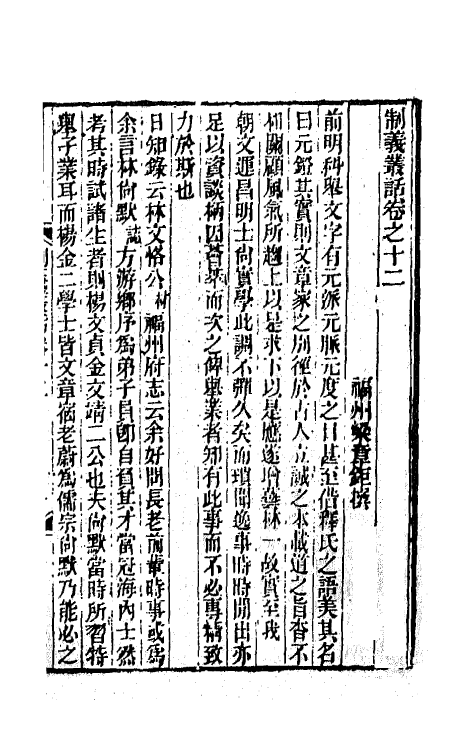 制義叢話卷之十二
福州梁章鉅撰
前明科舉文字有元派元脈元度之目甚至借釋氏之語美其名
曰元燈其實則文章家之別徑於古人立誠之本載道之旨杳不
相關顧風氣所趨上以是求下以是應遂增藝林一故實至我
朝文運昌明士尚實學此調不彈久矣而瑣聞逸事時時閒出亦
足以資談柄因薈萃而次之俾舉業者知有此事而不必專精致
力於斯也
日知錄云林文恪公材福州府志云余好問長老前輩時事或爲
余言林尚默誌方游鄉序爲弟子員卽自負其才當冠海內士然
考其時試諸生者則楊文貞金文靖二公也夫尚默當時所習特
舉子業耳而楊金二學士皆文章宿老蔚爲儒宗尚默乃能必之